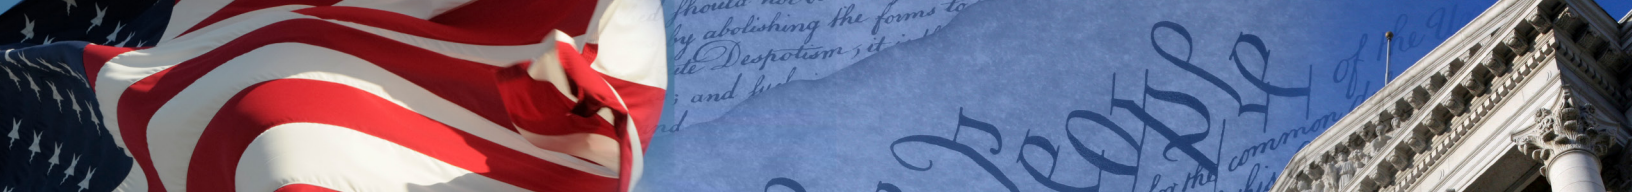 should not
by abolishing the forms to
Despotism, it
and
nd
People
of the U
for the common